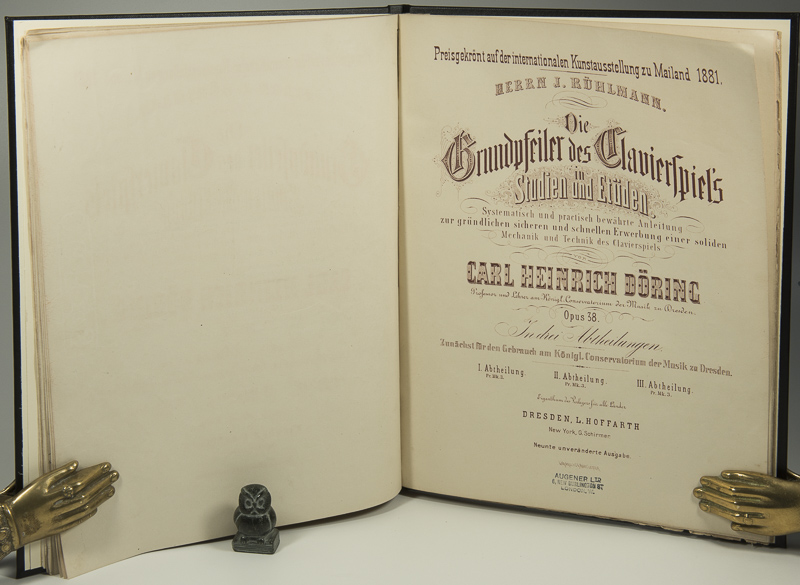 Preisgekrönt auf der internationalen Kunstausstellung zu Mailand 1881.
HERRN J. RÜHLMANN.
Die
Grundpfeiler des Clavierspiel's
in
Studien und Etüden.
Systematisch und practisch bewährte Anleitung
zur gründlichen sicheren und schnellen Erwerbung einer soliden
Mechanik und Technik des Clavierspiels
CARL HEINRICH DÖRING
Professor und Lehrer am Königl. Conservatorium der Musik zu Dresden.
Opus 38.
In drei Abtheilungen.
Zunächst für den Gebrauch am Königl. Conservatorium der Musik zu Dresden.
I. Abtheilung. II. Abtheilung. III. Abtheilung.
Pr. Mk. 3. Pr. Mk. 3. Pr. Mk. 3.
Eigenthum des Verlegers für alle Länder
DRESDEN, L. HOFFARTH
New York, G. Schirmer
Neunte unveränderte Ausgabe.
AUGENER LTD
LONDON, W.